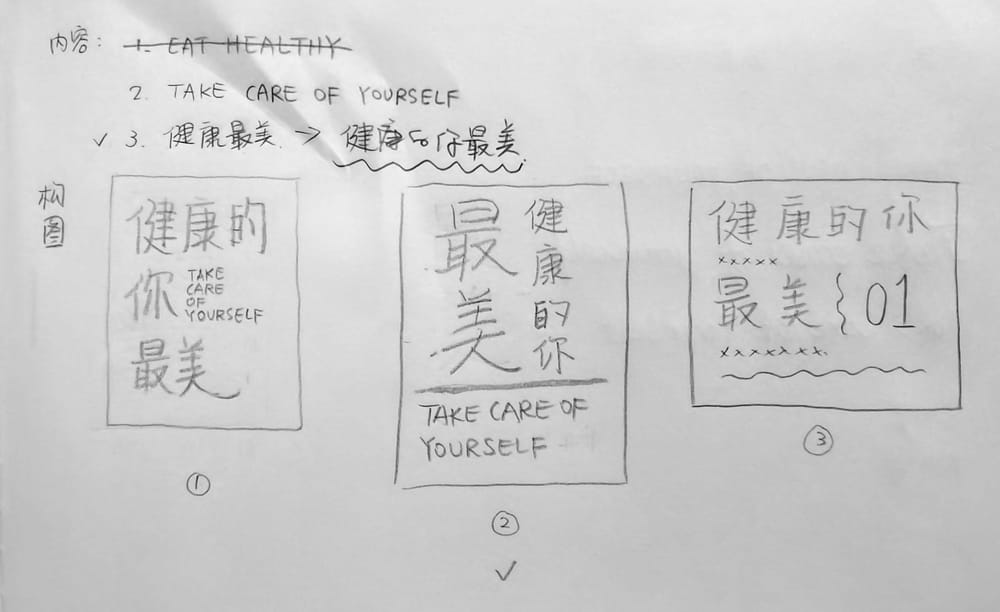 内容: 1. EAT HEALTHY
2. TAKE CARE OF YOURSELF
✓ 3. 健康最美. → 健康的你最美.
构图
健康的
你 TAKE CARE OF YOURSELF
最美
①
最美
健康的你
TAKE CARE OF
YOURSELF
②
✓
健康的你
xxxxx
最美 } 01
xxxxxxx.
③